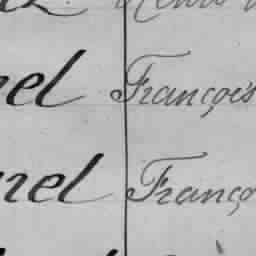 el François
rel Franço